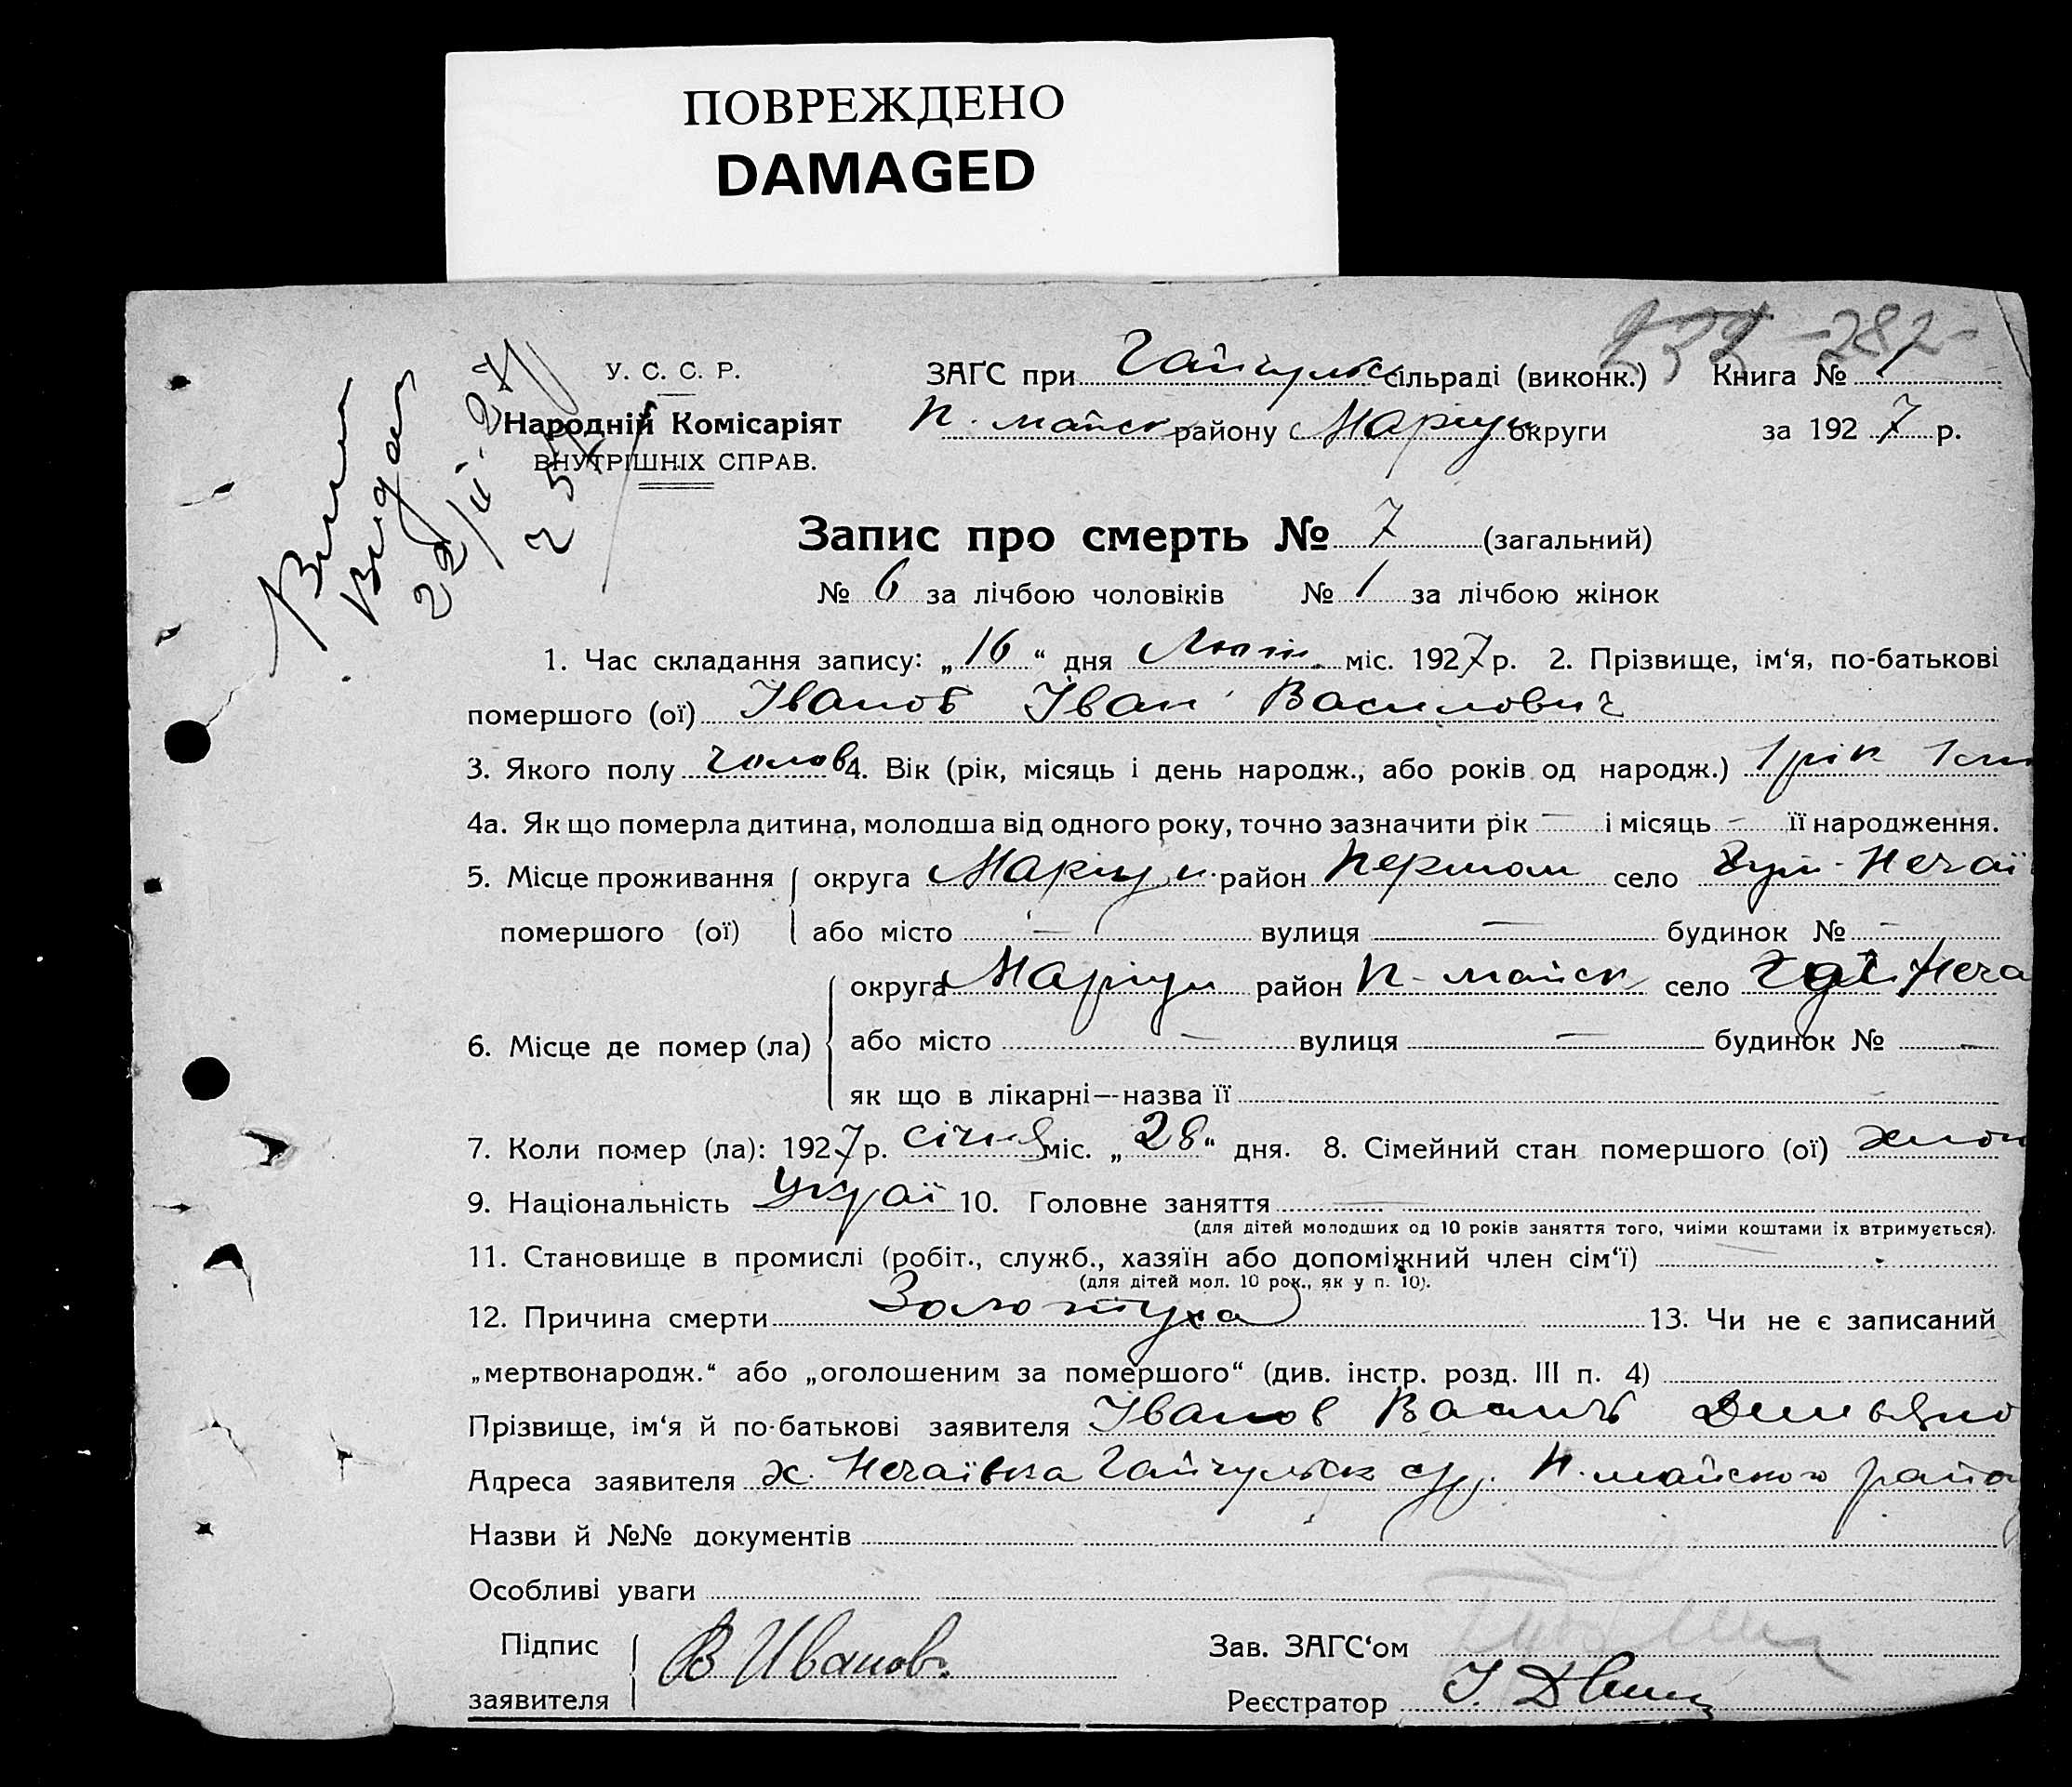 ПОВРЕЖДЕНО
DAMAGED
-282-
У. С. С. Р.
Народній Комісаріят
ВНУТРІШНІХ СПРАВ.
ЗАГС при Гайчульс сільраді (виконк.) Книга № 1
П. майск району Маріуп округи за 1927 р.
Запис про смерть № 7 (загальний)
№ 6 за лічбою чоловіків № 1 за лічбою жінок
1. Час складання запису: „16“ дня міс. 1927 р. 2. Прізвище, ім‘я, по-батькові
помершого (ої) Іванов Іван Василович
3. Якого полу чолов 4. Вік (рік, місяць і день народж., або років од народж.) 1 рік 1
4а. Як що померла дитина, молодша від одного року, точно зазначити рік — і місяць - її народження.
5. Місце проживання округа Маріуп. район Первом село Нечаї
помершого (ої) або місто — вулиця — будинок № —
округа Маріуп район П-майск село Неча
6. Місце де помер (ла) або місто — вулиця — будинок № —
як що в лікарні—назва її
7. Коли помер (ла): 1927 р. січня міс. „28“ дня. 8. Сімейний стан помершого (ої)
9. Національність Украї 10. Головне заняття —
(для дітей молодших од 10 років заняття того, чиїми коштами їх втримується).
11. Становище в промислі (робіт., служб., хазяїн або допоміжний член сім‘ї)
(для дітей мол. 10 рок., як у п. 10).
12. Причина смерти Золотуха 13. Чи не є записаний
„мертвонародж.“ або „оголошеним за помершого“ (див. інстр. розд. III п. 4)
Прізвище, ім‘я й по-батькові заявителя Іванов Василь
Адреса заявителя х. Нечаївка Гайчульск с/р. П. майского райо
Назви й №№ документів
Особливі уваги
Підпис
заявителя
В Иванов.
Зав. ЗАГС‘ом
Реєстратор